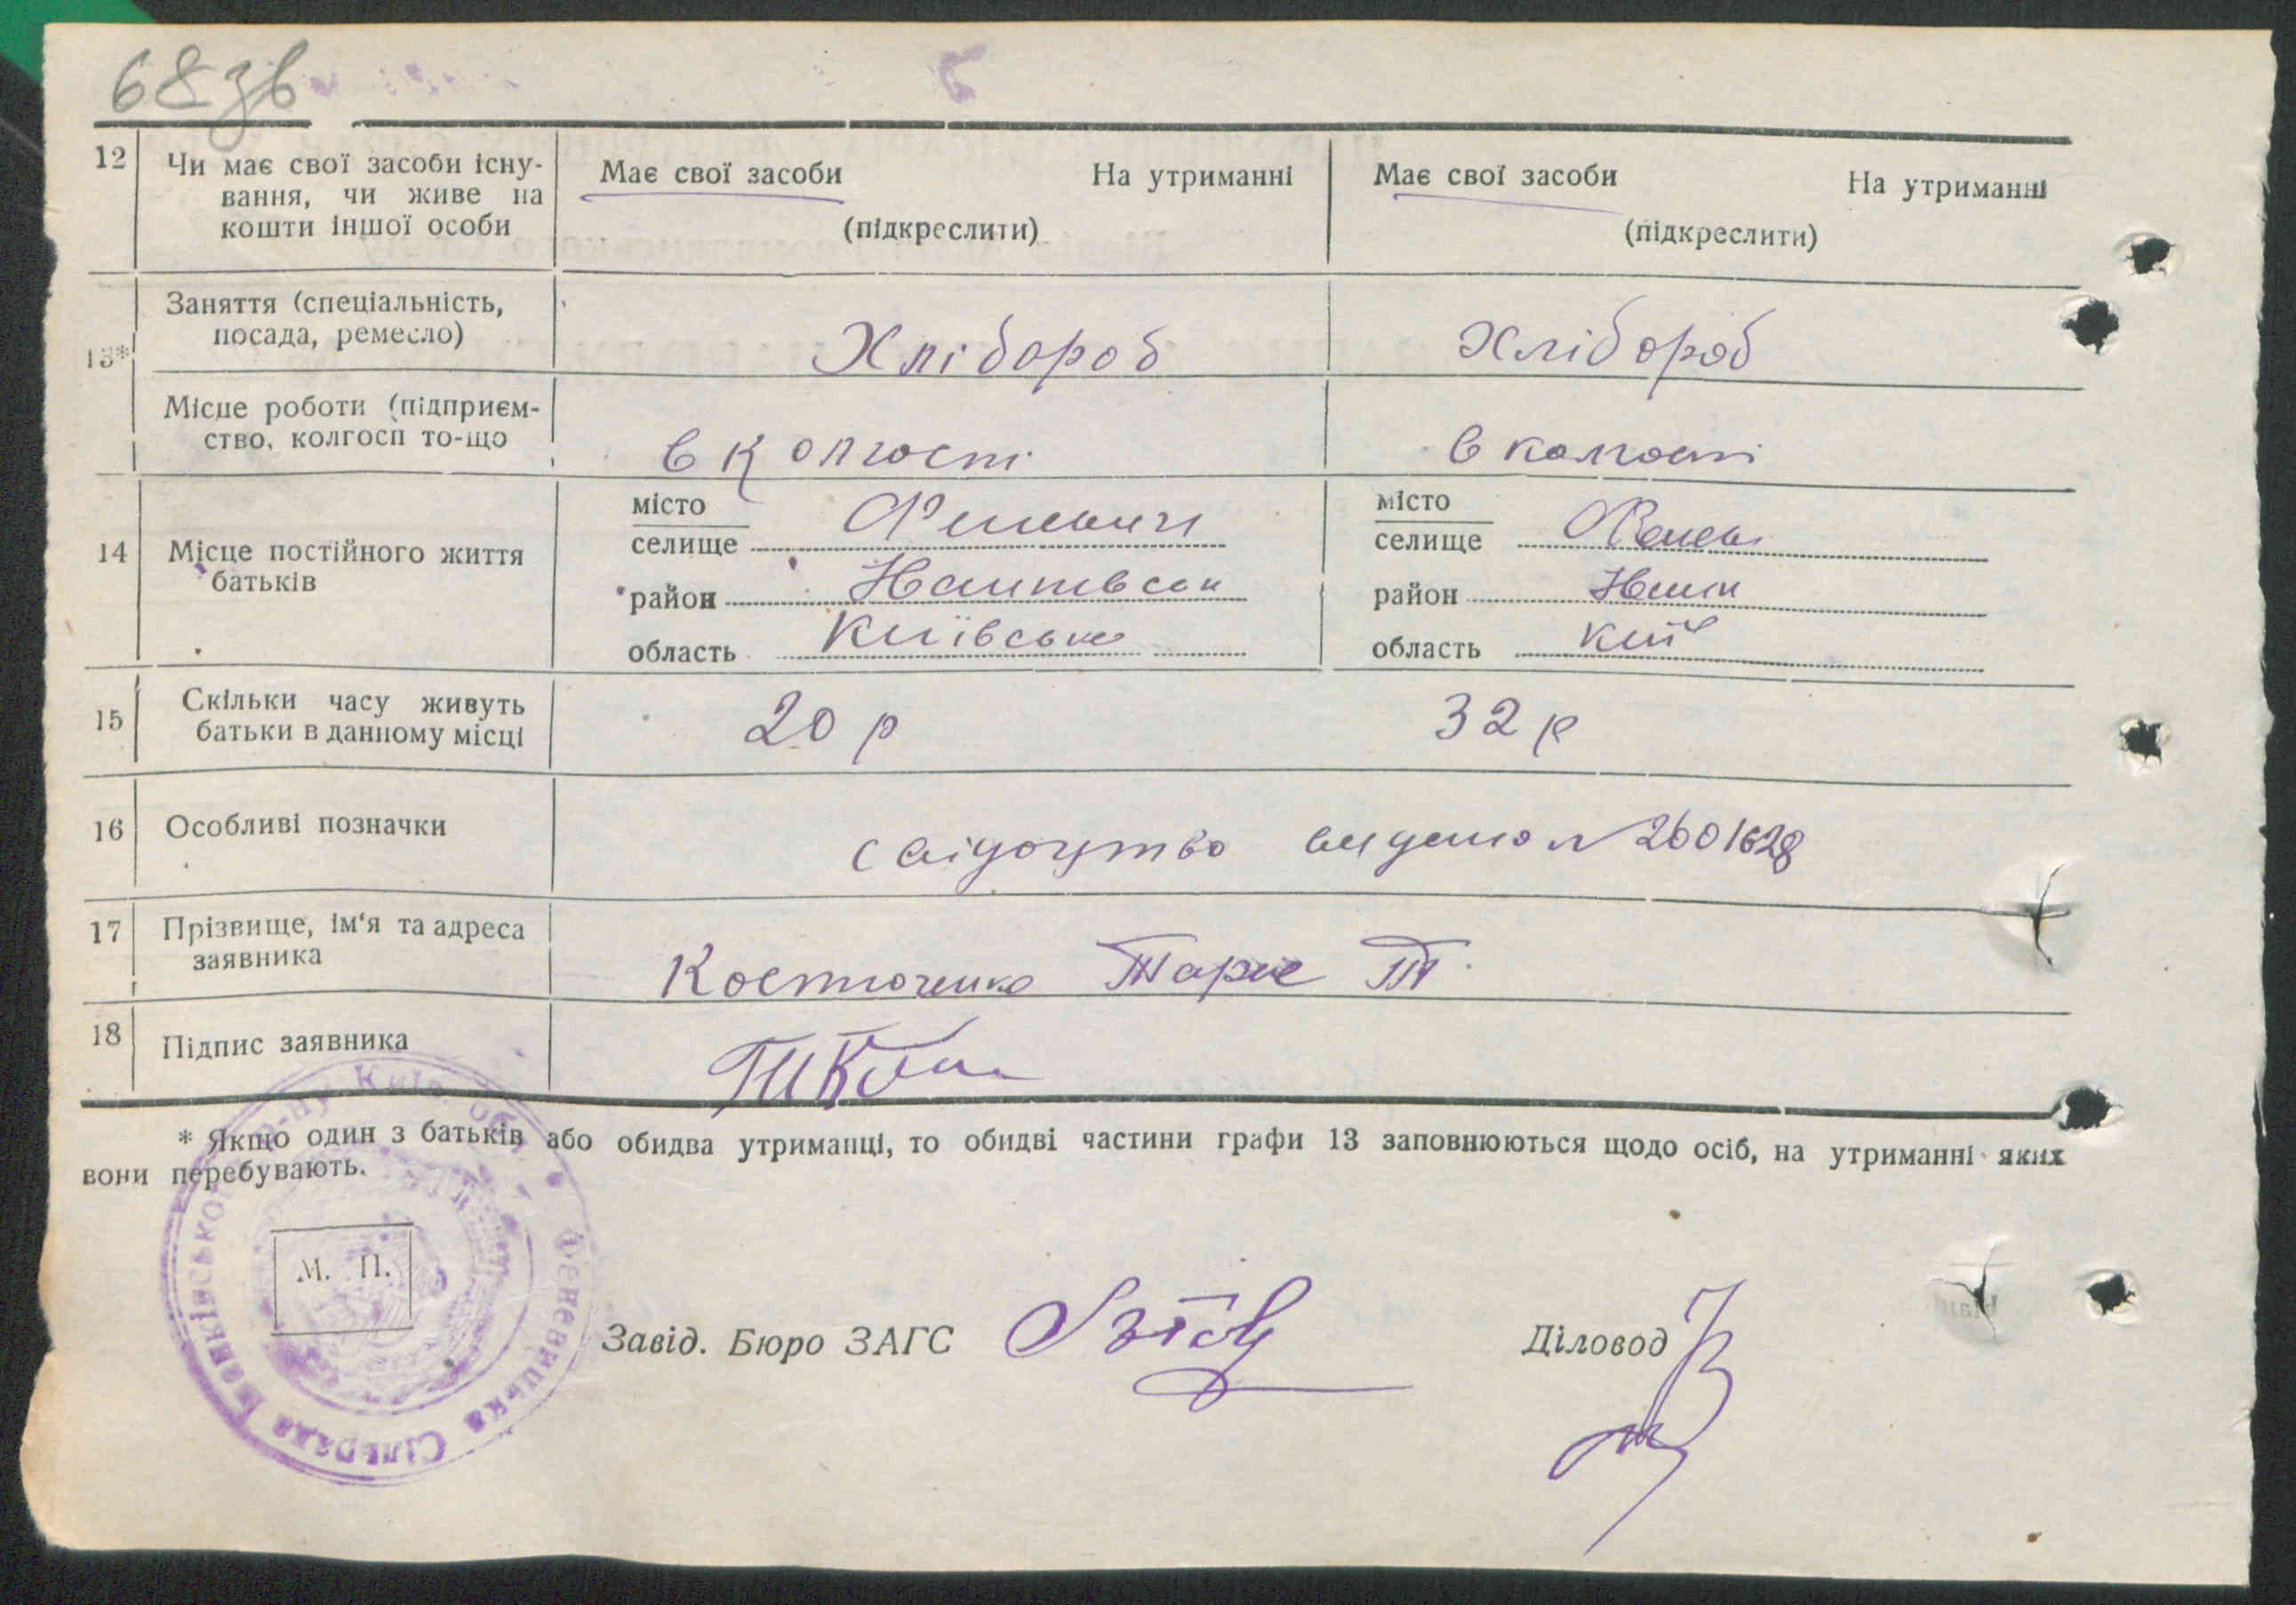 68зв
12 Чи має свої засоби існу-
вання, чи живе на
кошти іншої особи
Має свої засоби На утриманні
(підкреслити)
Має свої засоби На утриманні
(підкреслити)
13*
Заняття (спеціальність,
посада, ремесло)
Хлібороб
Хлібороб
Місце роботи (підприєм-
ство, колгосп то-що
в колгоспі
в колгоспі
14 Місце постійного життя
батьків
місто
селище Феневичі
район
область Київська
місто
селище Фенев
район
область Київ
15 Скільки часу живуть
батьки в данному місці
20 р
32 р
16 Особливі позначки
свідоцтво видано № 2601628
17 Прізвище, ім‘я та адреса
заявника
Костюченко Тарас Т.
18 Підпис заявника
* Якщо один з батьків або обидва утриманці, то обидві частини графи 13 заповнюються щодо осіб, на утриманні яких
вони перебувають.
М. П.
Феневицька Сільрада
р-ну Київ. обл.
Завід. Бюро ЗАГС
Діловод